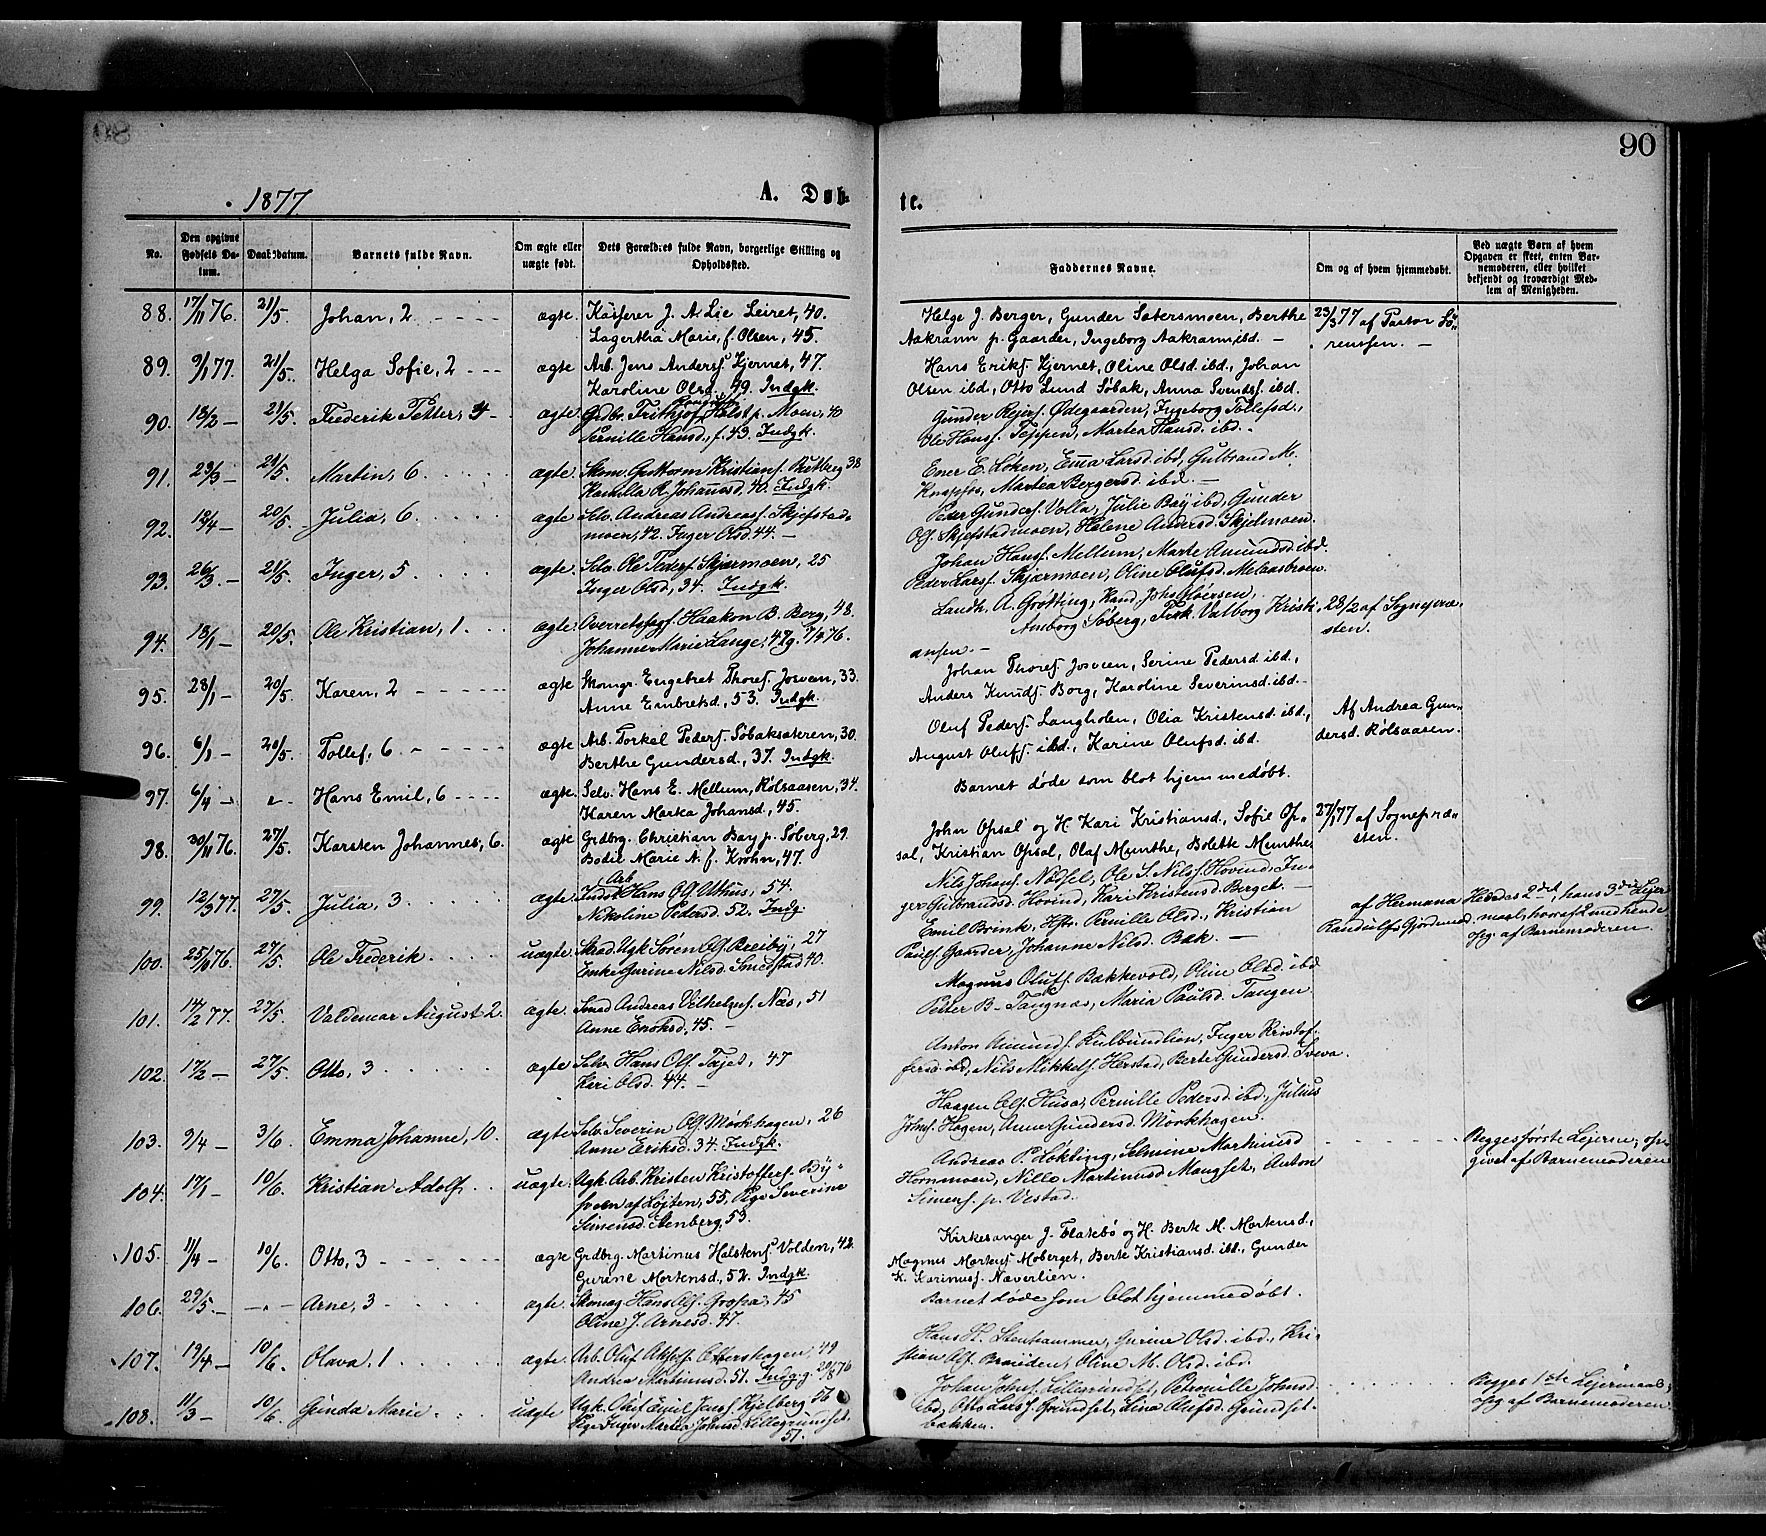 90
1877
A. Døb-
te.
No.
Den opgivne Fødsels Datum.
Daabsdatum.
Barnets fulde Navn.
Om ægte eller uægte født.
Dets Forældres fulde Navn, borgerlige Stilling og Opholdssted.
Faddernes Navne.
Om og af hvem hjemmedøbt.
Ved uægte Børn af hvem Opgaven er skeet, enten Barnemoderen, eller hvilket bekjendt og troværdigt Medlem af Menigheden.
88. 17/11 76. 21/5. Johan, 2 ægte. Kasserer J. A. Lie Leiret, 40.
Lagertha Marie, f. Olsen, 45.
Helge J. Berger, Gunder Sætersmoen, Berthe
Aakrann p. Gaarder, Ingeborg Aakrann, ibd. —
23/3 77 af Pastor Sö-
renssen. —
89. 9/1 77. 21/5. Helga Sofie, 2 ægte Arb. Jens Anders. Kjernet, 47.
Karoline Olsd., 49. Indgk.
Hans Eriks. Kjernet, Oline Olsd. ibd., Johan
Olsen ibd., Otto Lund Søbak, Anna Svends. ibd.
90. 13/2 — 21/5. Frederik Petter, 34 ægte Grdbr. Frithjof Holst p. Moen, 40
Pernille Hansd., f. 43. Indgk.
Gunder Rejers. Ødegaarden, Ingeborg Tollefsd.,
Ole Hans. Teppen, Martea Hansd. ibd.
91. 23/3 — 21/5. Martin, 6 ægte. Skom. Guttorm Kristians. 38
Kamilla R. Johannsd. 40. Indgk.
Ener E. Løken, Emma Larsd. ibd., Gulbrand M.
Martea Bergersd. ibd. —
92. 12/4 — 20/5. Julia, 6 ægte Selv. Andreas Andreass. Skjefstad-
moen, 42. Inger Olsd. 44. —
Peder Gunders. Volla, Julie Bay ibd., Gunder
Ols. Skjefstadmoen, Helene Andersd. Skjelmoen.
93. 26/3 — 21/5. Inger, 5 ægte. Selv. Ole Peders. Skjærmoen, 25
Inger Olsd., 34. Indgk.
Johan Hans. Mellum, Marte Amundsd. ibd.
Peder Lars. Skjærmoen, Oline Olufsd. Melaasbroen.
94. 18/1 — 20/5. Ole Kristian, 1. ægte. Overretssagf. Haakon B. Berg, 48.
Johanne Marie Lange, 47. g. 7/9 76.
Landh. A. Grøtting, Kand. Johs. Hoersen,
Amborg Søberg, Frk. Valborg Kristi-
ansen. —
28/2 af Sognepræ-
sten.
95. 28/1 — 20/5. Karen, 2 ægte Skomgr. Engebret Thores. Josveen, 33.
Anne Embretsd., 53. Indgk.
Johan Thores. Josveen, Serine Pedersd. ibd.,
Anders Knuds. Borg, Karoline Severinsd. ibd.
96. 6/1 — 20/5. Tollef, 6 ægte Arb. Torkel Peders. Søbaksæteren, 30.
Berthe Gundersd., 37. Indgk.
Oluf Peders. Langholen, Olia Kristensd. ibd.,
August Olufs. ibd., Karine Olufsd. ibd.
Af Andrea Gun-
dersd. Rølsaasen.
97. 6/4 — Hans Emil, 6 ægte. Selv. Hans E. Mellum, Rølsaasen, 34.
Karen Marka Johansd., 45.
Barnet døde som blot hjemmedøbt.
98. 30/11 76. 27/5. Karsten Johannes, 6. ægte Grdbrg. Christian Bay p. Søberg, 29.
Bodil Marie N. f. Krohn, 47.
John Opsal og H. Kari Kristiansd., Sofie Op-
sal, Kristian Opsal, Olaf Munthe, Bolette Munthe
27/1 77 af Sognepræ-
sten.
99. 12/3 77. 27/5. Julia, 3 ægte. Arb. Hans Ols. Utthus, 54.
Nikoline Pedersd. 52. Indg.
Nils Johans. Nødsel, Ole S. Nils. Hovind, In-
ger Gulbrandsd. Hovind, Kari Kristensd. Berget. —
100. 25/11 76. 27/5. Ole Frederik uægte Søren Ols. Breiby, 27
Enke Gurine Nilsd. Smedstad 40.
Emil Brink, Hstr. Pernille Olsd., Kristian
Pauls. Gaarder, Johanne Nilsd. Bæk. —
af Hermana
Randulfs. Gjørdsmd.
Hendes 2det, hans 3die Lejer-
maal, hvoraf 2 med hende
Opg. af Barnemoderen
101. 14/2 77. 27/5. Valdemar August 2. ægte. Smed Andreas Vilhelms. Næs, 51
Anne Enoksd., 45. —
Magnus Olufs. Bækkevold, Oline Olsd. ibd
Petter B. Tangnæs, Maria Paulsd. Tangen
102. 17/2 — 27/5. Otto, 3 ægte Selv. Hans Ols. Tajet, 47
Kari Olsd. 44. —
Anton Amunds. Kulbundlien, Inger Kristof-
fersd. ibd., Nils Mikkels. Herstad, Berte Gundersd. Sveva.
103. 9/4 — 3/6. Emma Johanne, 10. ægte Selv. Severin Ols. Mørkhagen, 26
Anne Eriksd. 34. Indgk.
Haagen Ols. Husa, Pernille Pedersd. ibd., Julius
Johns. Hagen, Anne Gundersd. Mørkhagen.
104. 17/1 — 10/6. Kristian Adolf uægte. Ugk. Arb. Kristen Kristoffers. By-
sveen af Løjten, 55, Pige Severine
Simensd. Stenberg, 53.
Andreas P. Løkting, Selmine Martinusd
Hornmoen, Nille Martinusd. Maugset, Anton
Simens. p. Vestad.
Begges første Lejersm., op-
givet af Barnemoderen
105. 11/4 — 10/6. Otto, 3 ægte Grdbrg. Martinus Halstens. Volden, 42.
Gurine Mortensd., 52. Indgk.
Kirkesanger J. Flatebø og H. Berte M. Mortensd.,
Magnus Mortens. Moberget, Berte Kristiansd. ibd., Gunder
K. Karinuss. Naverlien.
106. 29/5. — Arne, 3 ægte. Skomag. Hans Ols. Gropa, 45
Oline J. Arnesd. 47.
Barnet døde som blot hjemmedøbt.
107. 19/4 — 10/6. Olava, 1 ægte. Arb. Oluf Ottershagen, 49
Andrea Martinusd. 51. Indg. g. 20/8 76
Hans H. Stenhammer, Gurine Olsd. ibd., Kri-
stian Ols. Braaden, Oline M. Olsd. ibd.
108. 11/3 — 10/6. Gunda Marie uægte Ugk. Emil Jens. Kjelberg 56
Pige Inger Martea Johnsd. Lillegrundset.
51.
Johan Johns. Lillegrundset, Petronille Johnsd
ibd, Otto Lars. Grundset, Lina Olufsd. Grundset-
bakken.
Begges 1ste Lejermaal,
Opg. af Barnemoderen.